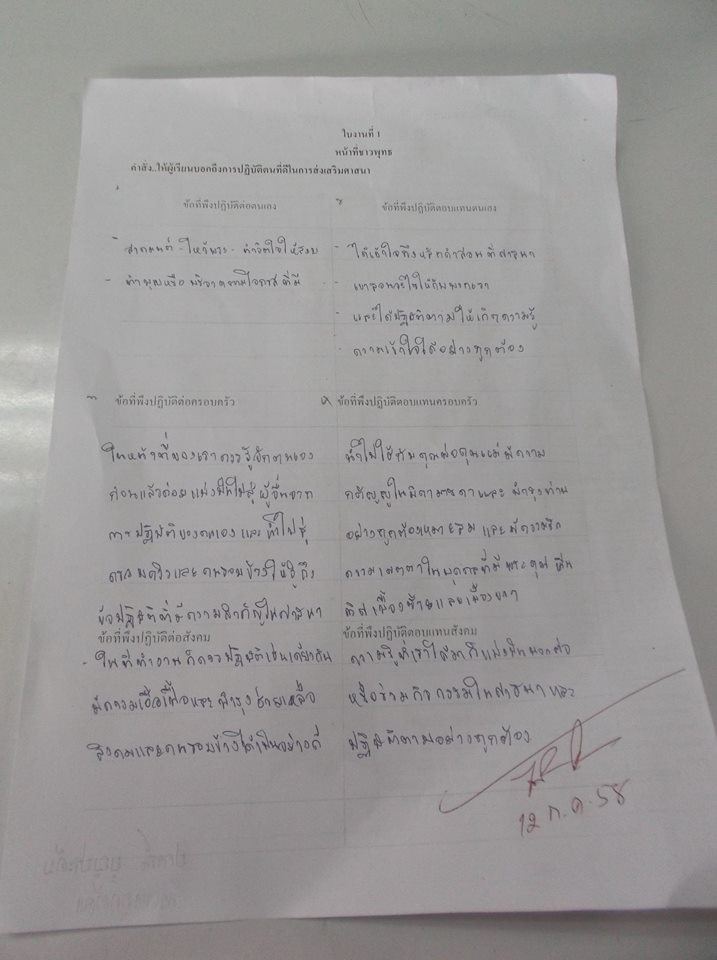 ใบงานที่ 1
หน้าที่ชาวพุทธ
คำสั่ง..ให้ผู้เรียนบอกถึงการปฏิบัติตนที่ดีในการส่งเสริมศาสนา
ข้อที่พึงปฏิบัติต่อตนเอง
- สวดมนต์ - ไหว้พระ - ทำจิตใจให้สงบ
- ทำบุญหรือ บริจาคตามโอกาส ที่มี
ข้อที่พึงปฏิบัติตอบแทนตนเอง
- ได้เข้าใจถึงหลักคำสอน ที่ศาสนา
- เขาสอนจะไว้ให้กับพวกเรา
- และได้ปฏิบัติตามให้เกิดความรู้
- ความเข้าใจได้อย่างถูกต้อง
ข้อที่พึงปฏิบัติต่อครอบครัว
ในหน้าที่ของเราควรรู้จักตนเอง
ก่อนแล้วค่อยแบ่งปันไปสู่ ผู้อื่นจาก
การปฏิบัติของตนเอง และ นำไปสู่
ครอบครัวและคนรอบข้างให้รู้ถึง
ข้อปฏิบัติที่มีความสำคัญในศาสนา
ข้อที่พึงปฏิบัติตอบแทนครอบครัว
นำไปใช้กับ คุณพ่อคุณแม่ มีความ
กตัญญูในบิดามารดาและ บำรุงท่าน
อย่างถูกต้องเหมาะสม และ มีความรัก
ความเมตตาในบุคคลที่มี พระคุณ
ทิศเบื้องซ้ายและเบื้องขวา
ข้อที่พึงปฏิบัติต่อสังคม
- ในที่ทำงานก็ควรปฏิบัติเช่นเดียวกัน
มีความเอื้อเฟื้อและบำรุงช่วยเหลือ
สังคมและคนรอบข้างได้เป็นอย่างดี
ข้อที่พึงปฏิบัติตอบแทนสังคม
ความรู้ที่เราได้มาก็แบ่งปันบอกต่อ
หรือร่วมกิจกรรมในศาสนาและ
ปฏิบัติตามอย่างถูกต้อง
12 ก.ค. 58